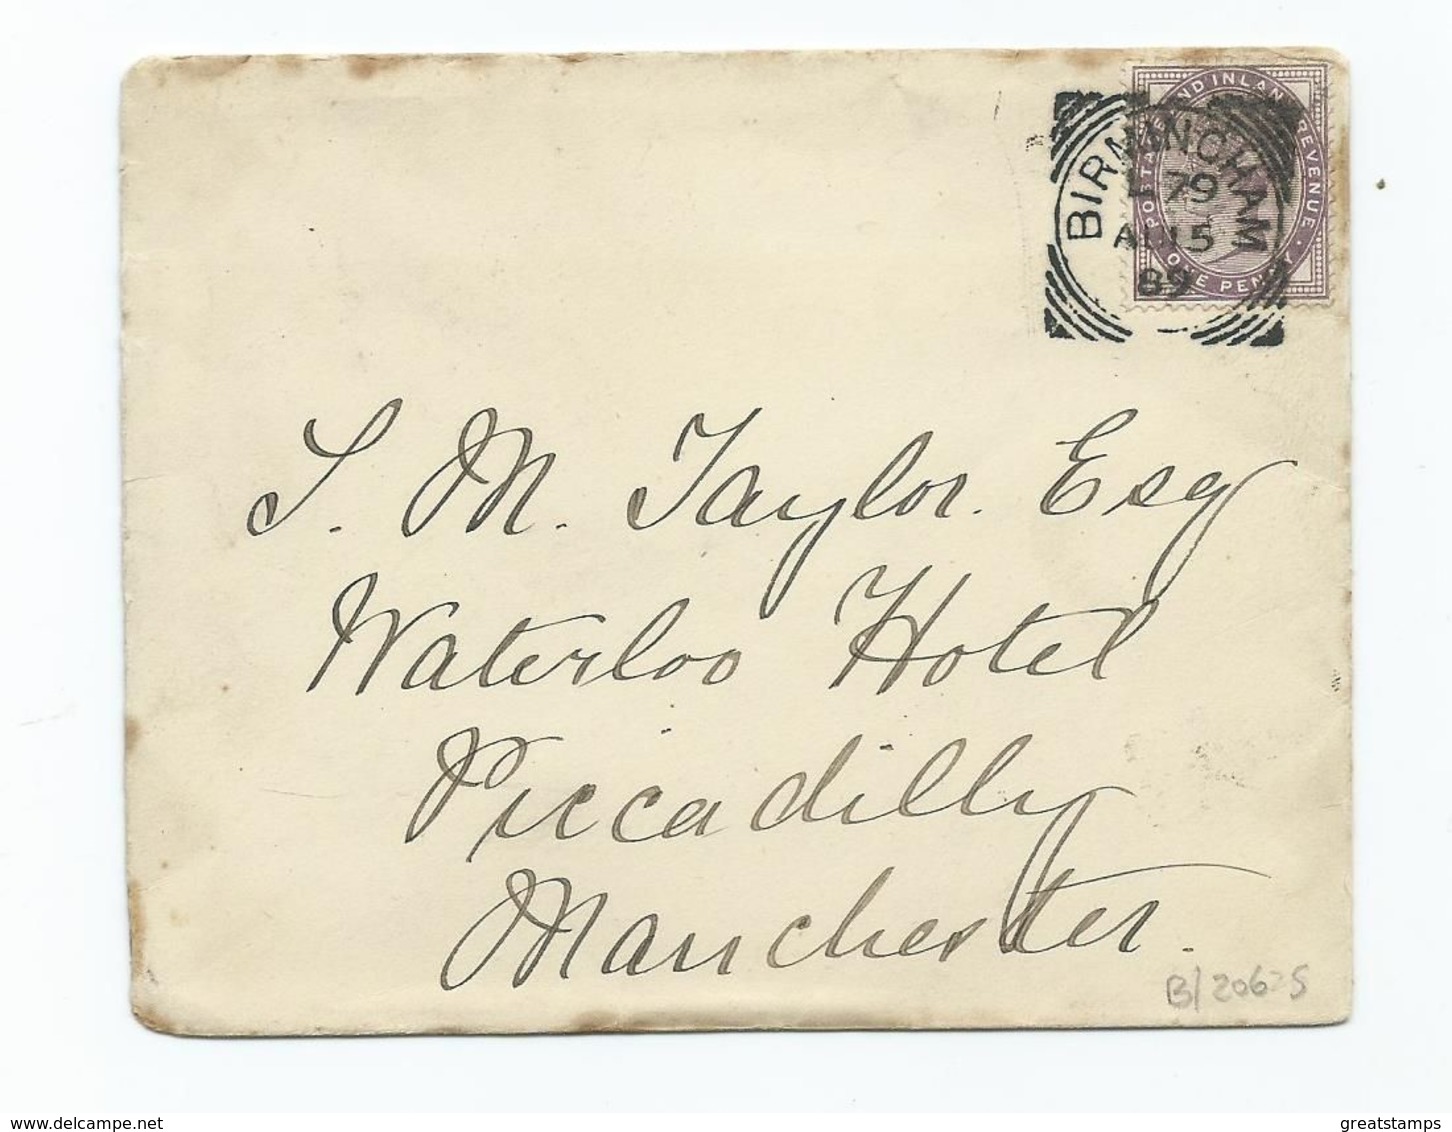 POSTAGE AND INLAND REVENUE
ONE PENNY
BIRMINGHAM
L 79
AU 15
89
S. M. Taylor. Esq
Waterloo Hotel
Piccadilly
Manchester.
www.delcampe.net
greatstamps